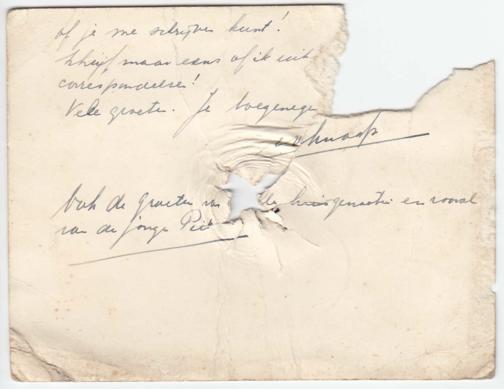 of je me schrijven kunt!
Schrijf maar eens of ik uit
correspondentie!
Vele groeten. Je toegenegen
Ook de groeten van alle huisgenooten en vooral
van de jonge Piet